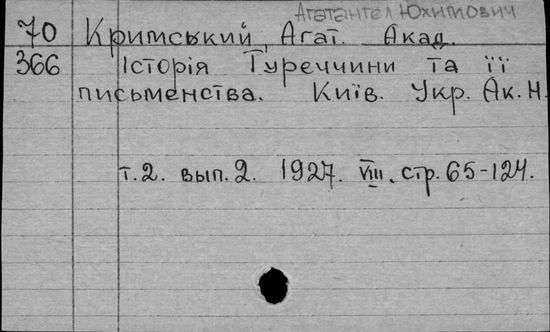 Агатангел Юхимович
70 Кримський, Агат. Акад.
366 Історія Туреччини та її
письменства. Київ. Укр. Ак. Н.
т.2. вып.2. 1927. VIII. стр. 65-124.